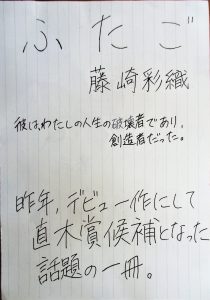 ふたご
藤崎彩織
彼は、わたしの人生の破壊者であり、
創造者だった。
昨年、デビュー作にして
直木賞候補となった
話題の一冊。